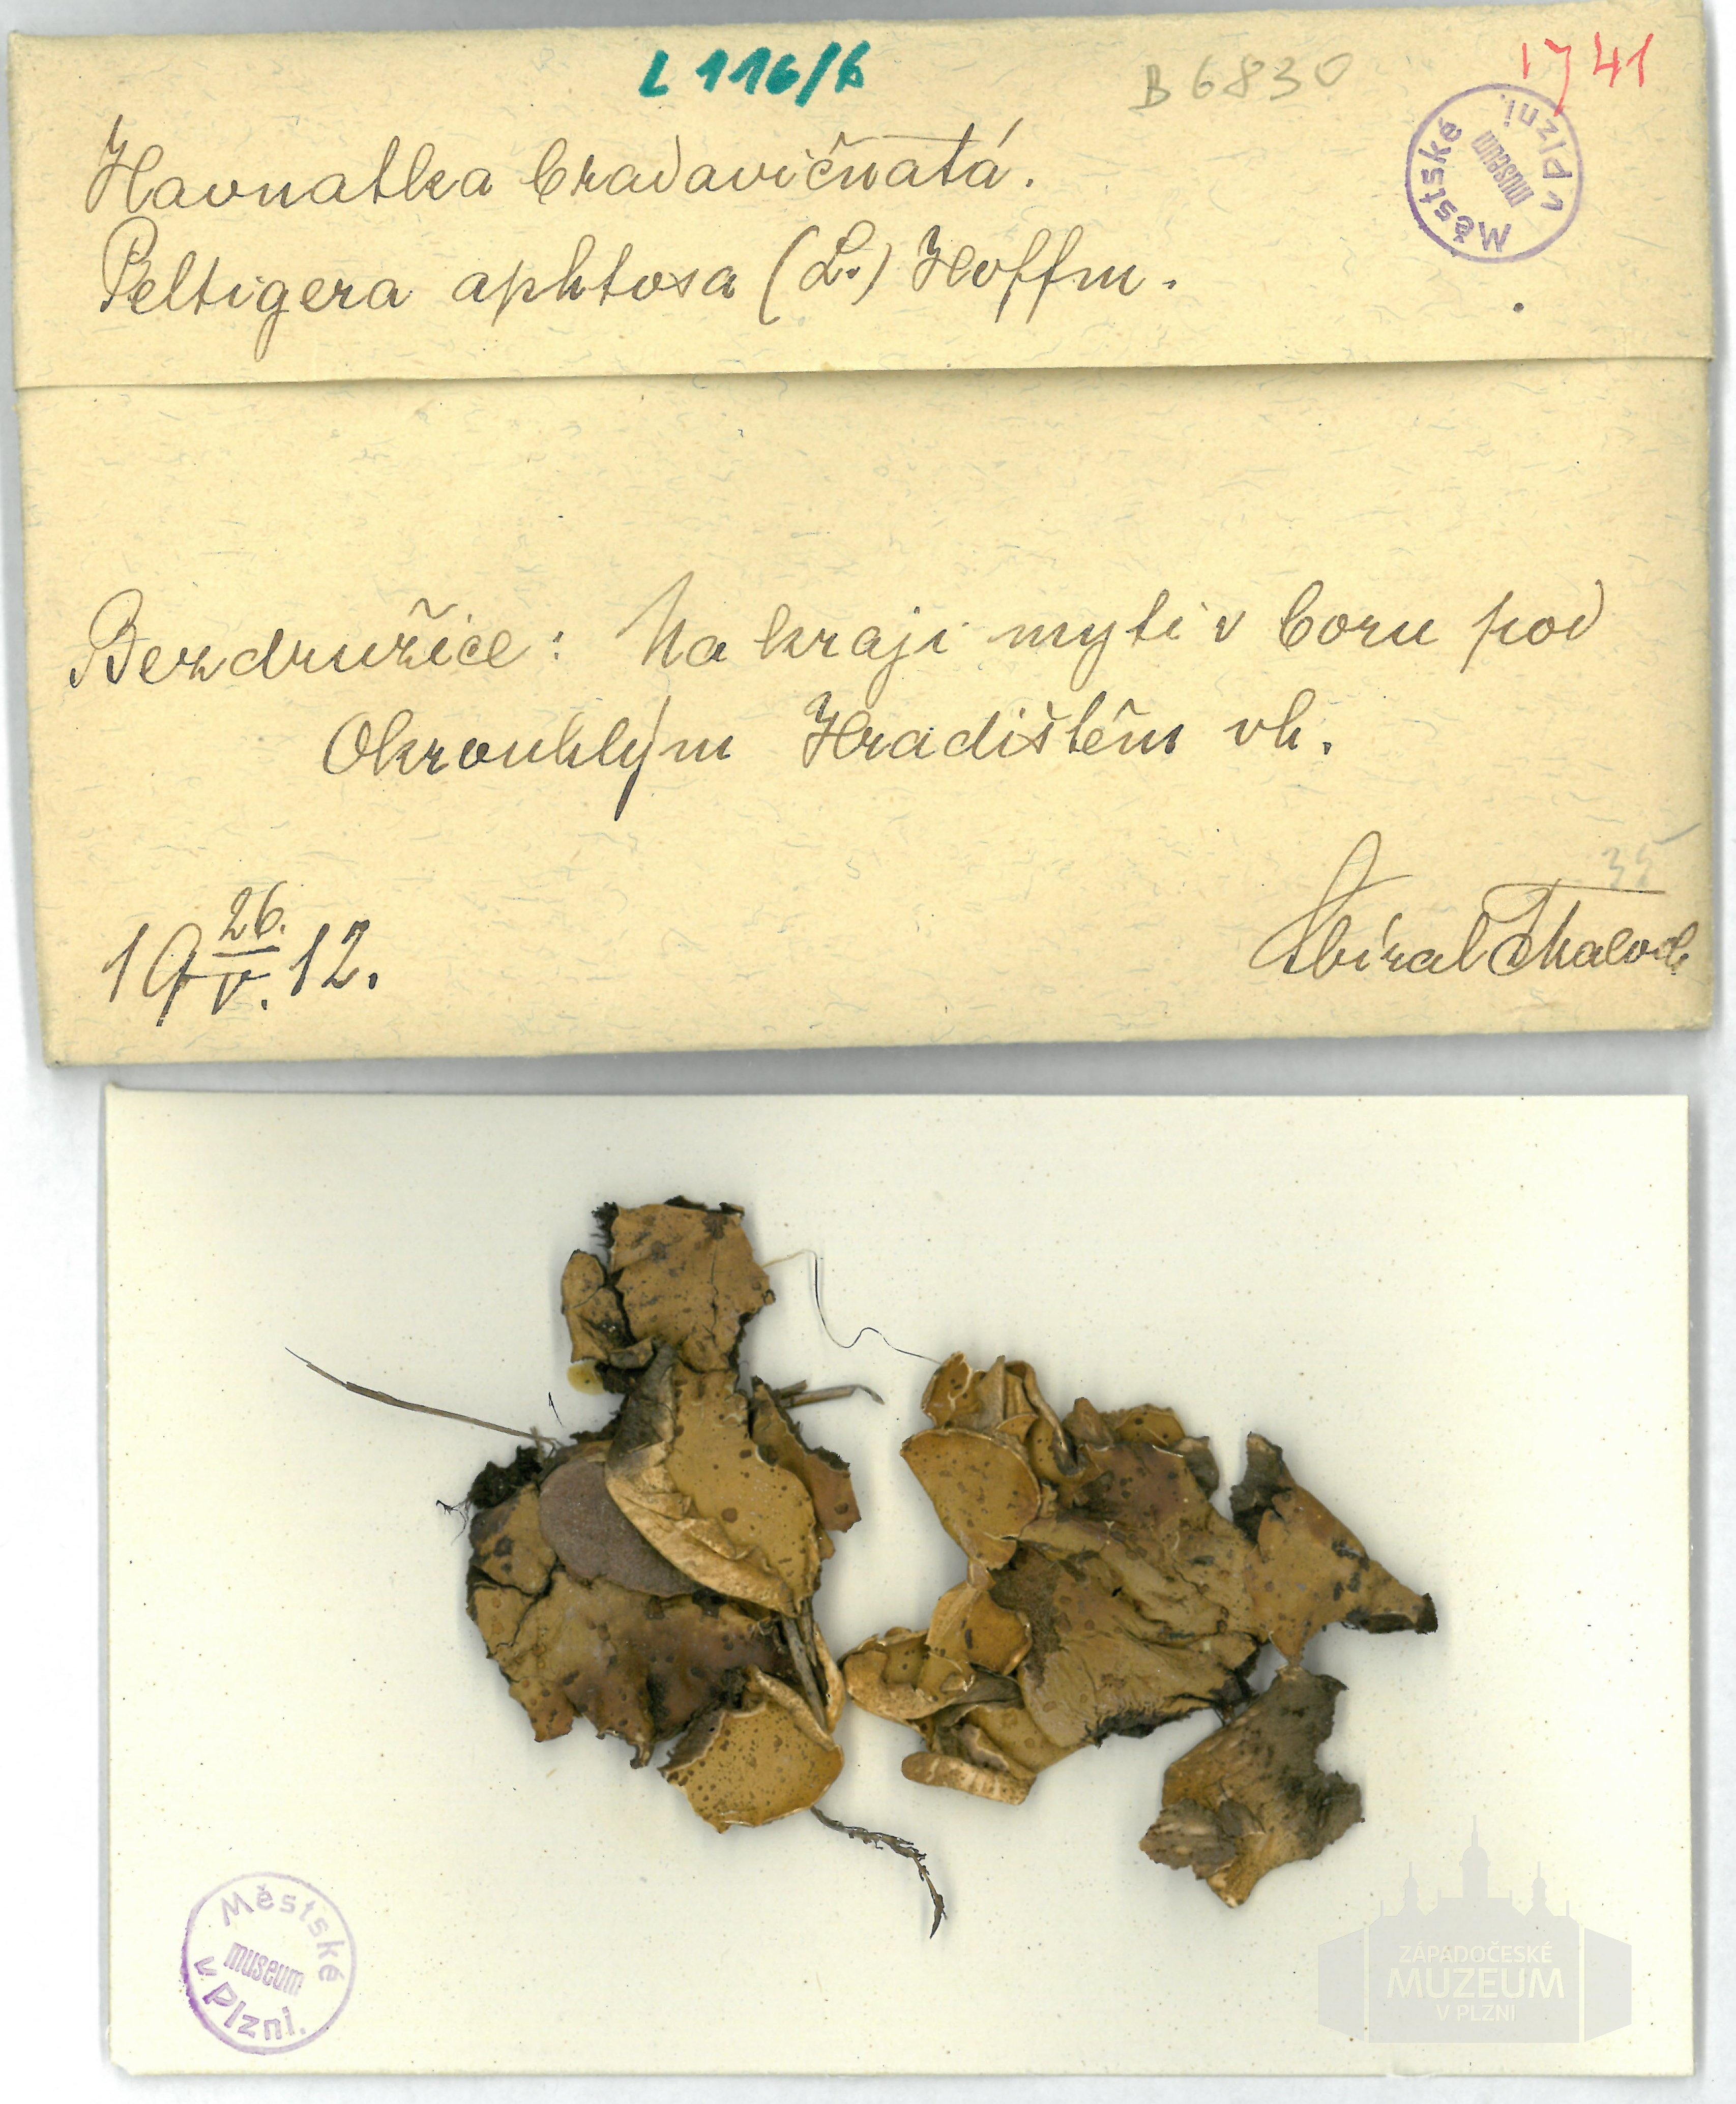 L 116/b
B 6830
1741
Městské museum v Plzni.
Havnatka bradavičnatá.
Peltigera aphtosa (L.) Hoffm.
Bezdružice: Na kraji mýti v boru pod
Okrouhlým Hradištěm vh.
35
19 26./V. 12.
Sbíral
Městské museum v Plzni.
ZÁPADOČESKÉ
MUZEUM
V PLZNI